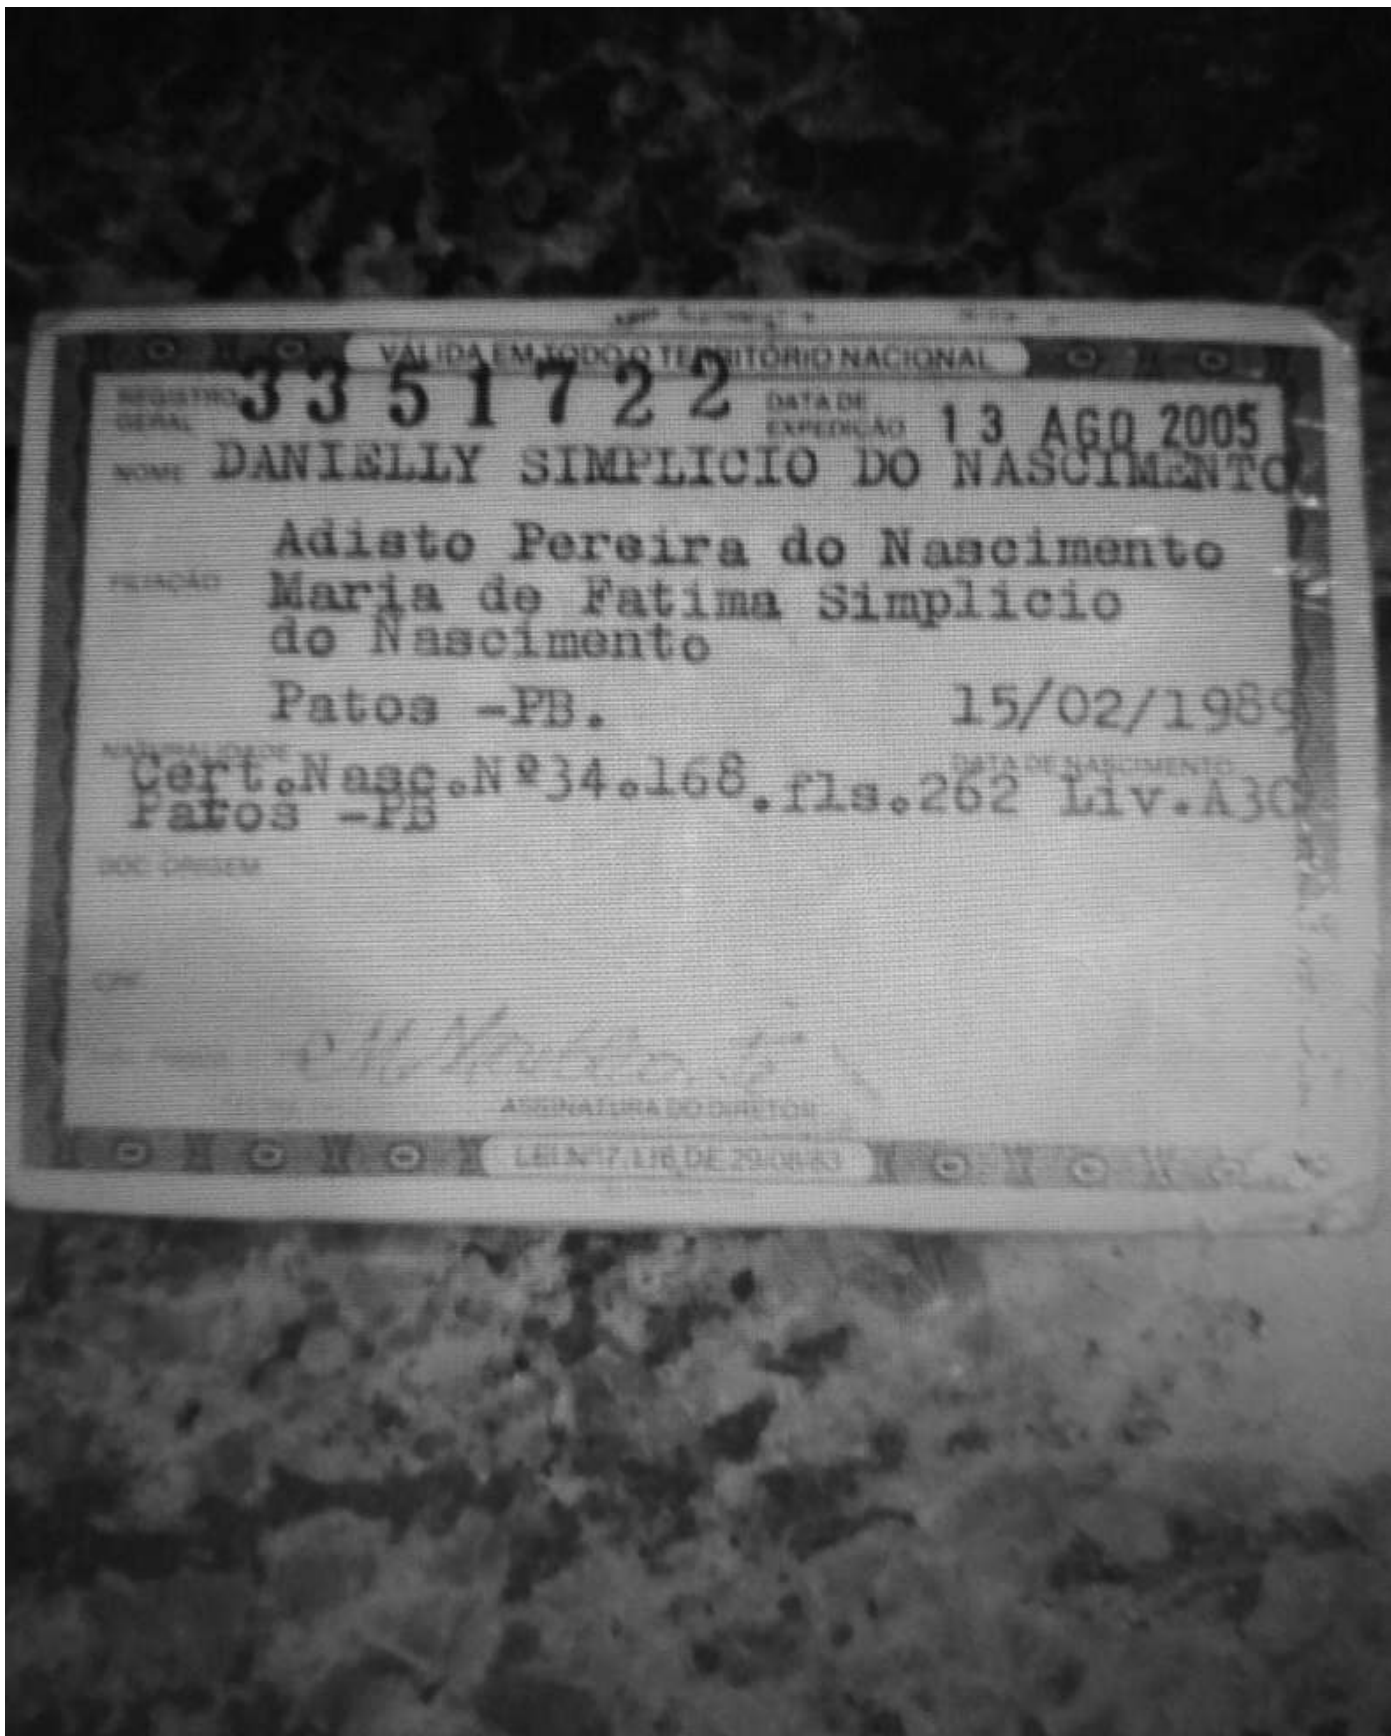 VÁLIDA EM TODO O TERRITÓRIO NACIONAL
REGISTRO GERAL 3351722 DATA DE EXPEDIÇÃO 13 AGO 2005
NOME DANIELLY SIMPLICIO DO NASCIMENTO
Adisto Pereira do Nascimento
FILIAÇÃO Maria de Fatima Simplicio
do Nascimento
Patos -PB. 15/02/1989
NATURALIDADE DATA DE NASCIMENTO
Cert.Nasc.Nº34.168.fls.262 Liv.A30
Patos -PB
DOC. ORIGEM
CPF
ASSINATURA DO DIRETOR
LEI Nº 7.116 DE 29/08/83